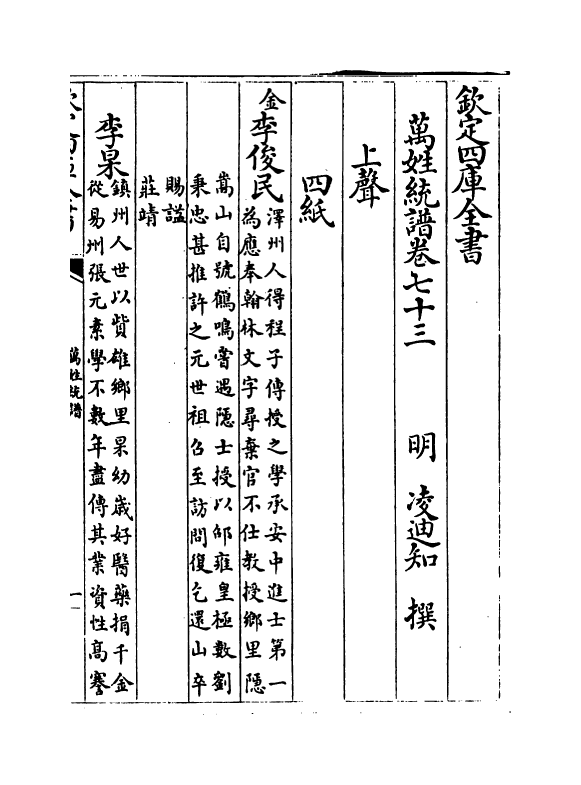 欽定四庫全書
萬姓統譜卷七十三
明 凌迪知 撰
上聲
四紙
金
李俊民
澤州人得程子傳授之學承安中進士第一
為應奉翰林文字尋棄官不仕教授鄉里隱
嵩山自號鶴鳴嘗遇隱士授以邵雍皇極數劉
秉忠甚推許之元世祖召至訪問復乞還山卒
賜謚
莊靖
李杲
鎮州人世以貲雄鄉里杲幼歲好醫藥捐千金
從易州張元素學不數年盡傳其業資性高謇
萬姓統譜
一